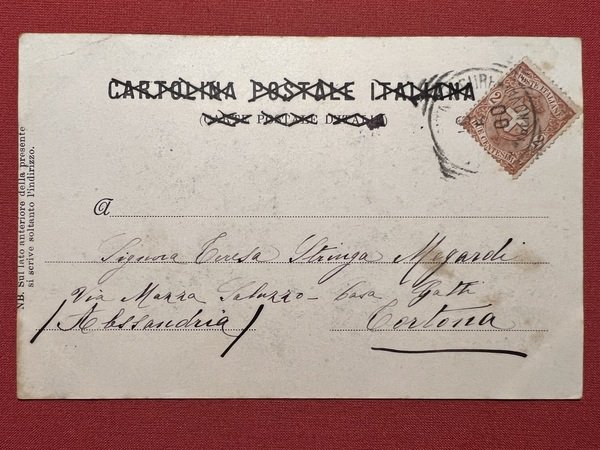 CARTOLINA POSTALE ITALIANA
(CARTE POSTALE D'ITALIE)
POSTE ITALIANE
DUE CENTESIMI
A
Signora Teresa Stringa Megardi
Via Mazza Saluzzo - Casa Gatti
(Alessandria) Tortona
NB. Sul lato anteriore della presente
si scrive soltanto l'indirizzo.